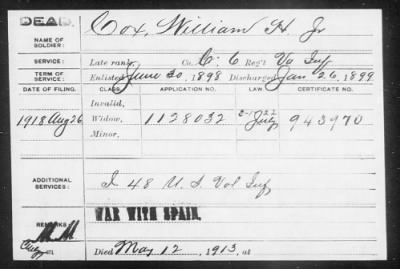 DEAD.
NAME OF SOLDIER: Cox, William H. Jr
SERVICE: Late rank, Co. C. 6 Reg't Va Inf
TERM OF SERVICE: Enlisted June 30, 1898 Discharged Jan 26, 1899
DATE OF FILING. CLASS. APPLICATION NO. LAW. CERTIFICATE NO.
Invalid,
1918 Aug 26 Widow, 1128032 July 943970
Minor,
ADDITIONAL SERVICES: I 48 U. S. Vol Inf
WAR WITH SPAIN.
REMARKS:
Died May 12, 1913, at